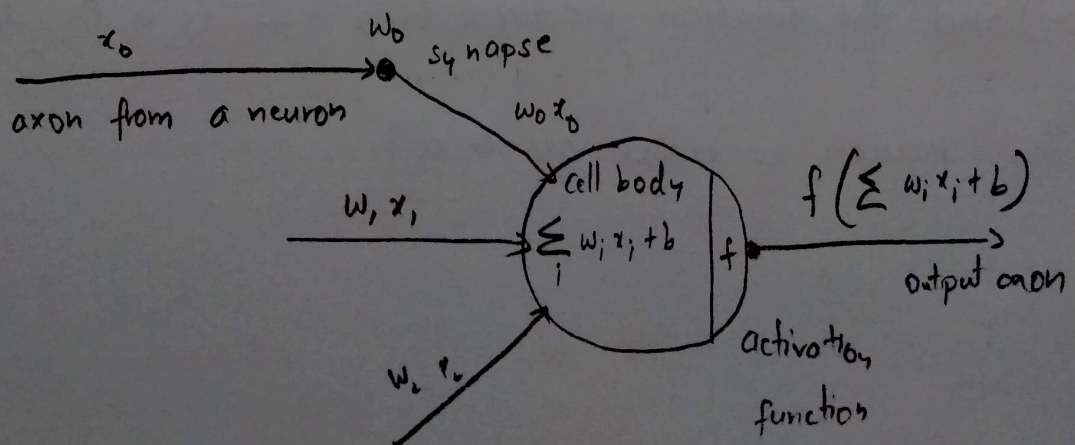 x₀
w₀
synapse
axon from a neuron
w₀x₀
cell body
w₁ x₁
∑ wᵢ xᵢ + b
i
f
f(∑ wᵢ xᵢ + b)
output axon
w₂
activation
function